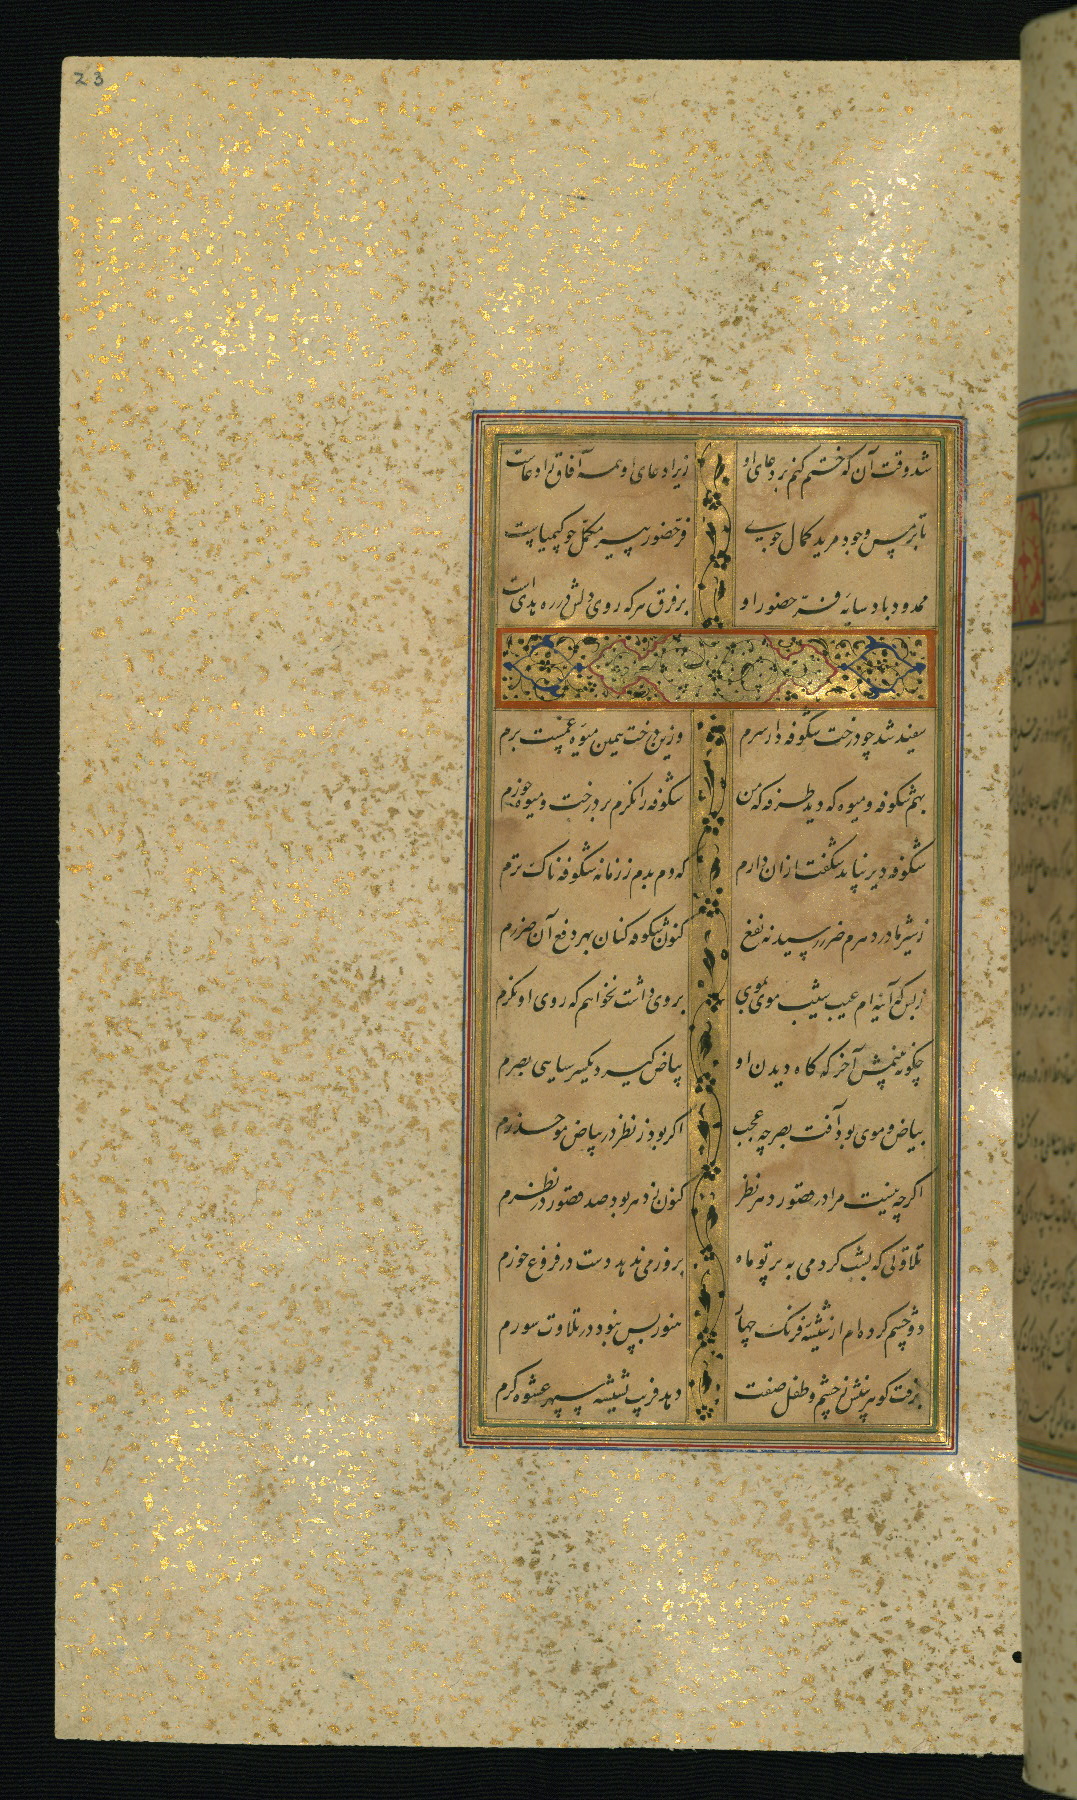 23
شد وقت آن که ختم کنم بر دعای او زیرا دعای او همه آفاق را دعاست
تا بر مس وجود مرید کمال جوی فر حضور پیر مکمل چو کیمیاست
ممدود باد سایه فر حضور او بر فرق هر که روی دلش در ره هداست
سفید شد چو درخت شکوفه دار سرم وزین درخت همین میوه غمست برم
بهم شکوفه و میوه که دید طرفه که من شکوفه را نگرم بر درخت و میوه خورم
شکوفه دیر نپاید شگفت ازان دارم که دم بدم ز زمانه شکوفه ناک ترم
ز شیر مادر دهرم ضرر رسید نه نفع کنون شکوفه کنان بهر دفع آن ضررم
ز بس که آینه ام عیب شیب موی بموی بروی داشت نخواهم که روی او نگرم
چگونه بینمش آخر که گاه دیدن او بیاض گیرد یکسر سیاهی بصرم
بیاض موی بود آفت بصر چه عجب اگر بود ز نظر در بیاض مو حذرم
اگر چه نیست مرا در قصور دهر نظر کنون ز دهر بود صد قصور در نظرم
تلاوتی که بشب کردمی به پرتو ماه بروز می ندهد دست در فروغ خورم
دو چشم کرده ام از شیشه فرنگ چهار هنوز بس نبود در تلاوت سورم
نزفت کوهر بینش ز چشم و طفل صفت دهد فریب شیشه سپهر عشوه گرم